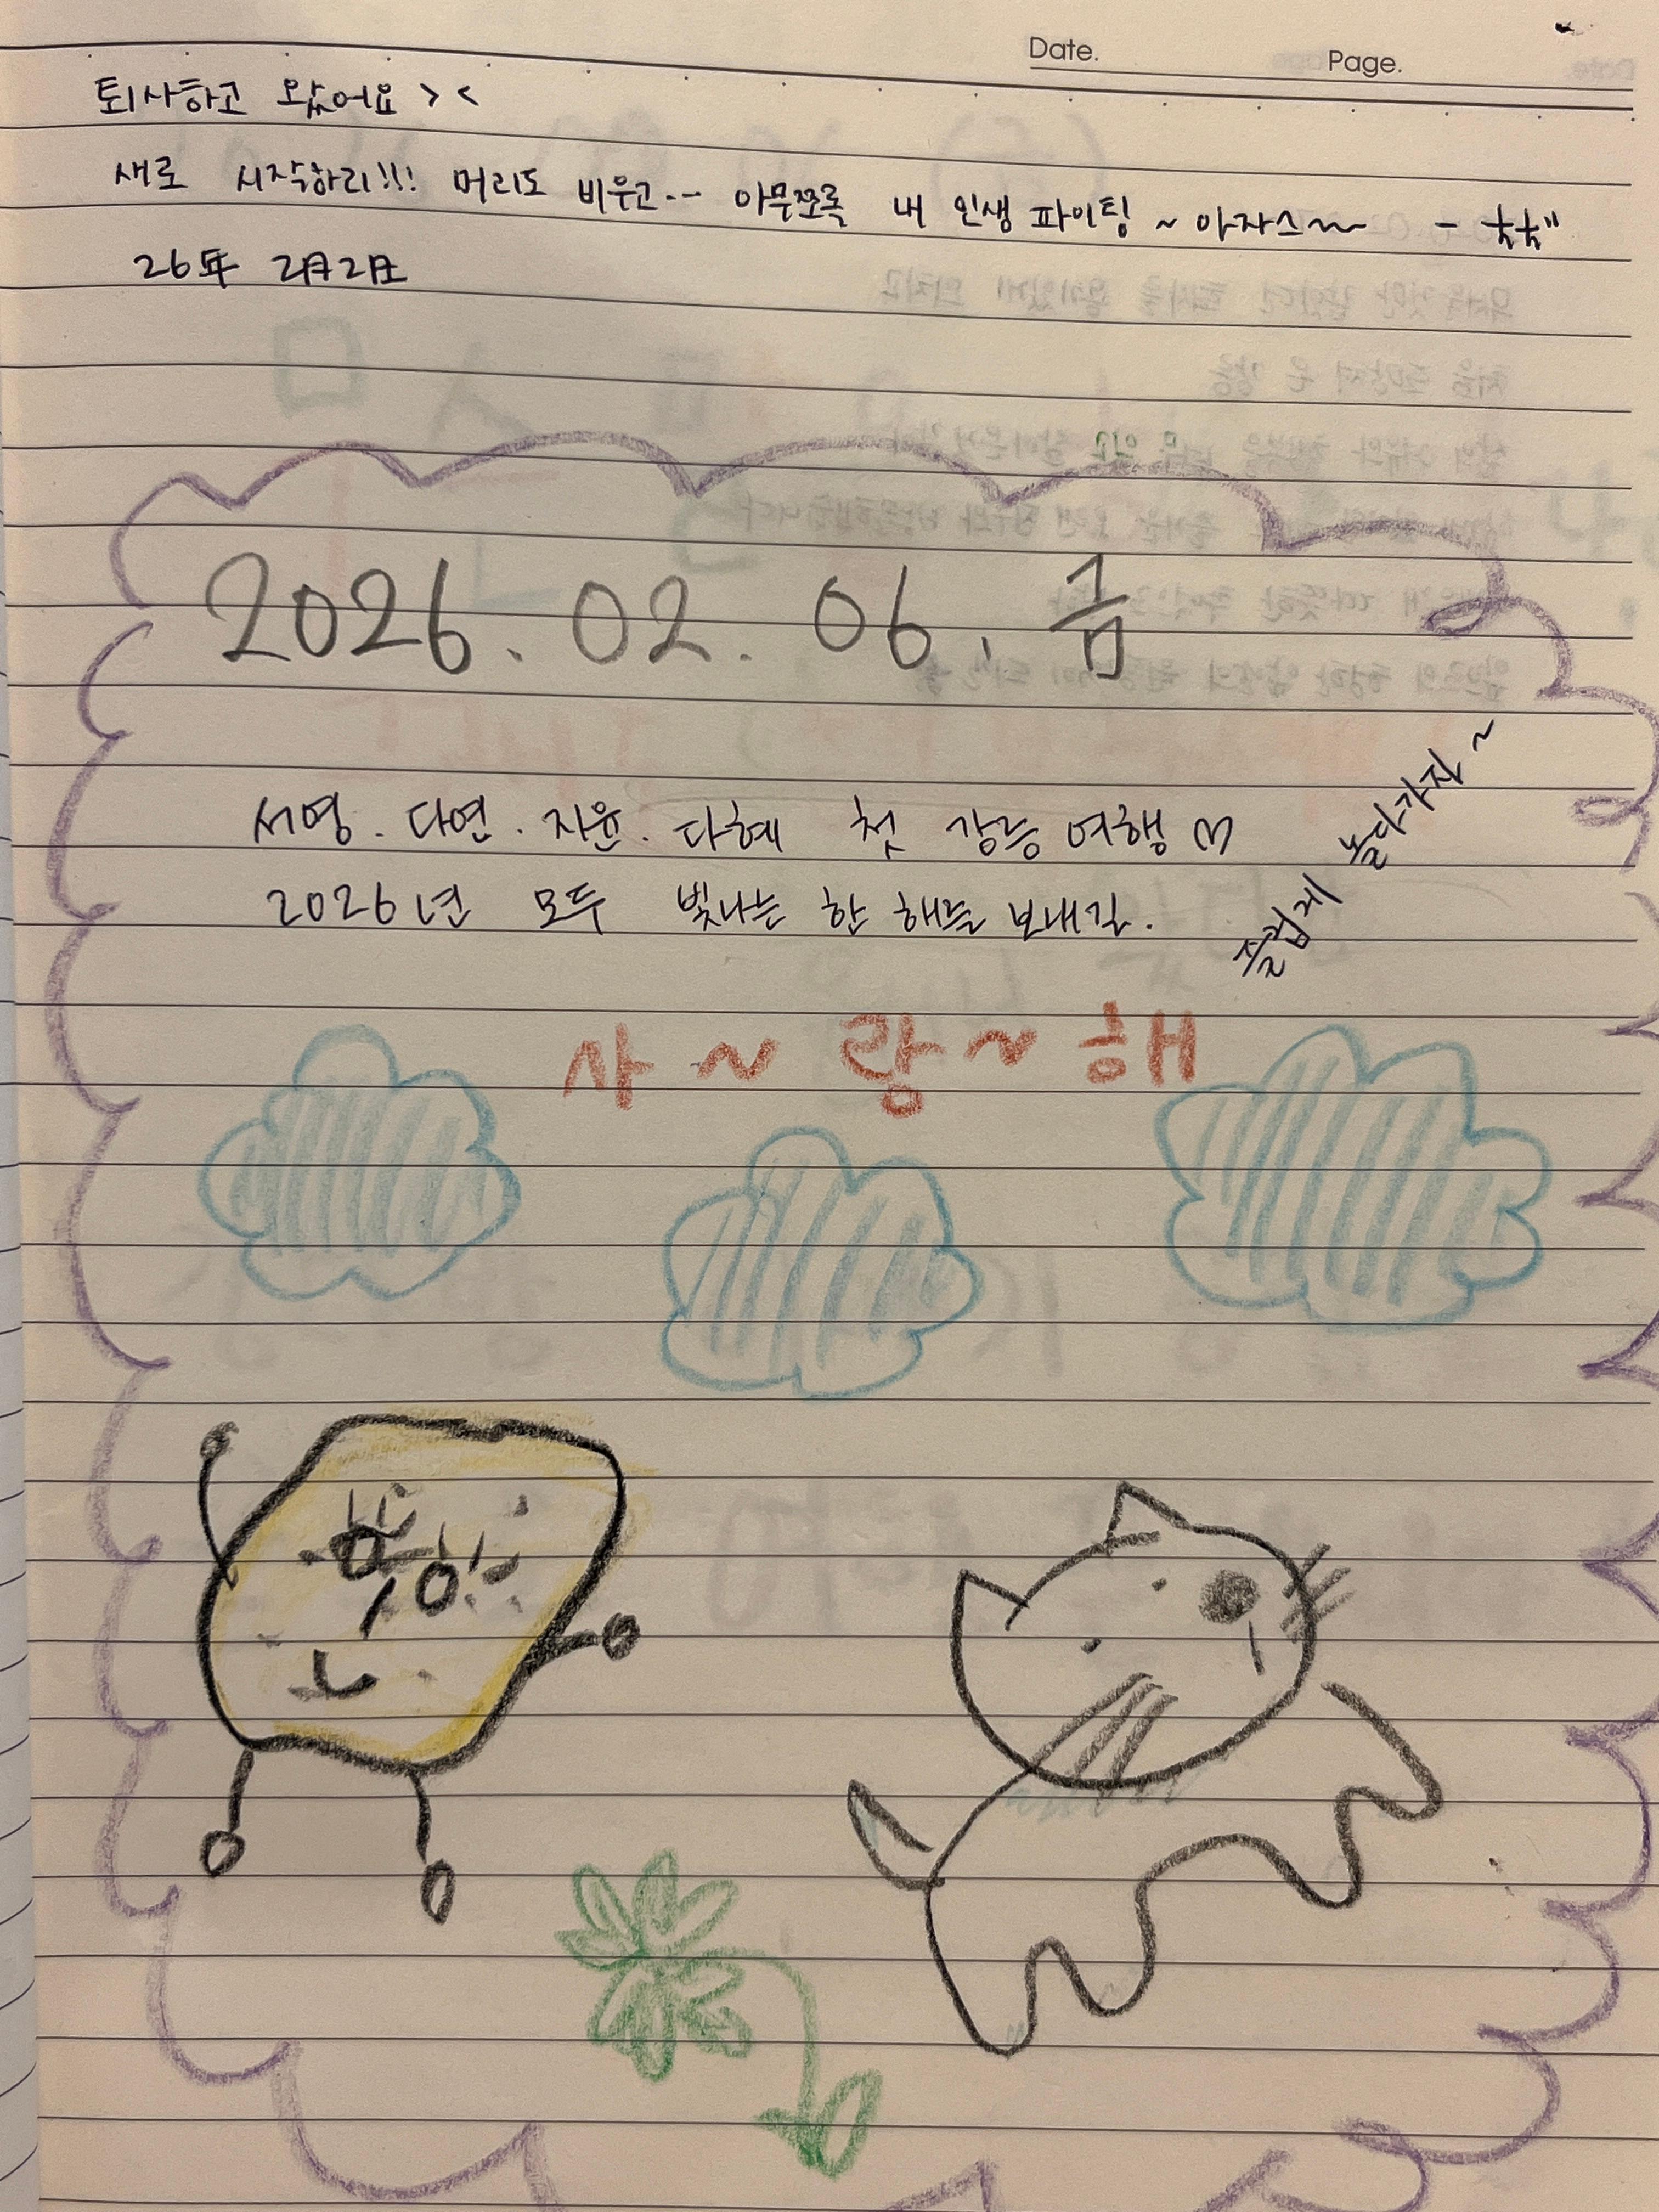 Date. Page.
퇴사하고 왔어요 > <
새로 시작하리!!! 머리도 비우고... 아무쪼록 내 인생 파이팅 ~ 아자스~~ -
26年 2月2日
2026. 02. 06. 금
서영. 다연. 지윤. 다혜 첫 강릉 여행 ♡
2026년 모두 빛나는 한 해를 보내길.
즐겁게 놀다가자 ~
사 ~ 랑 ~ 해